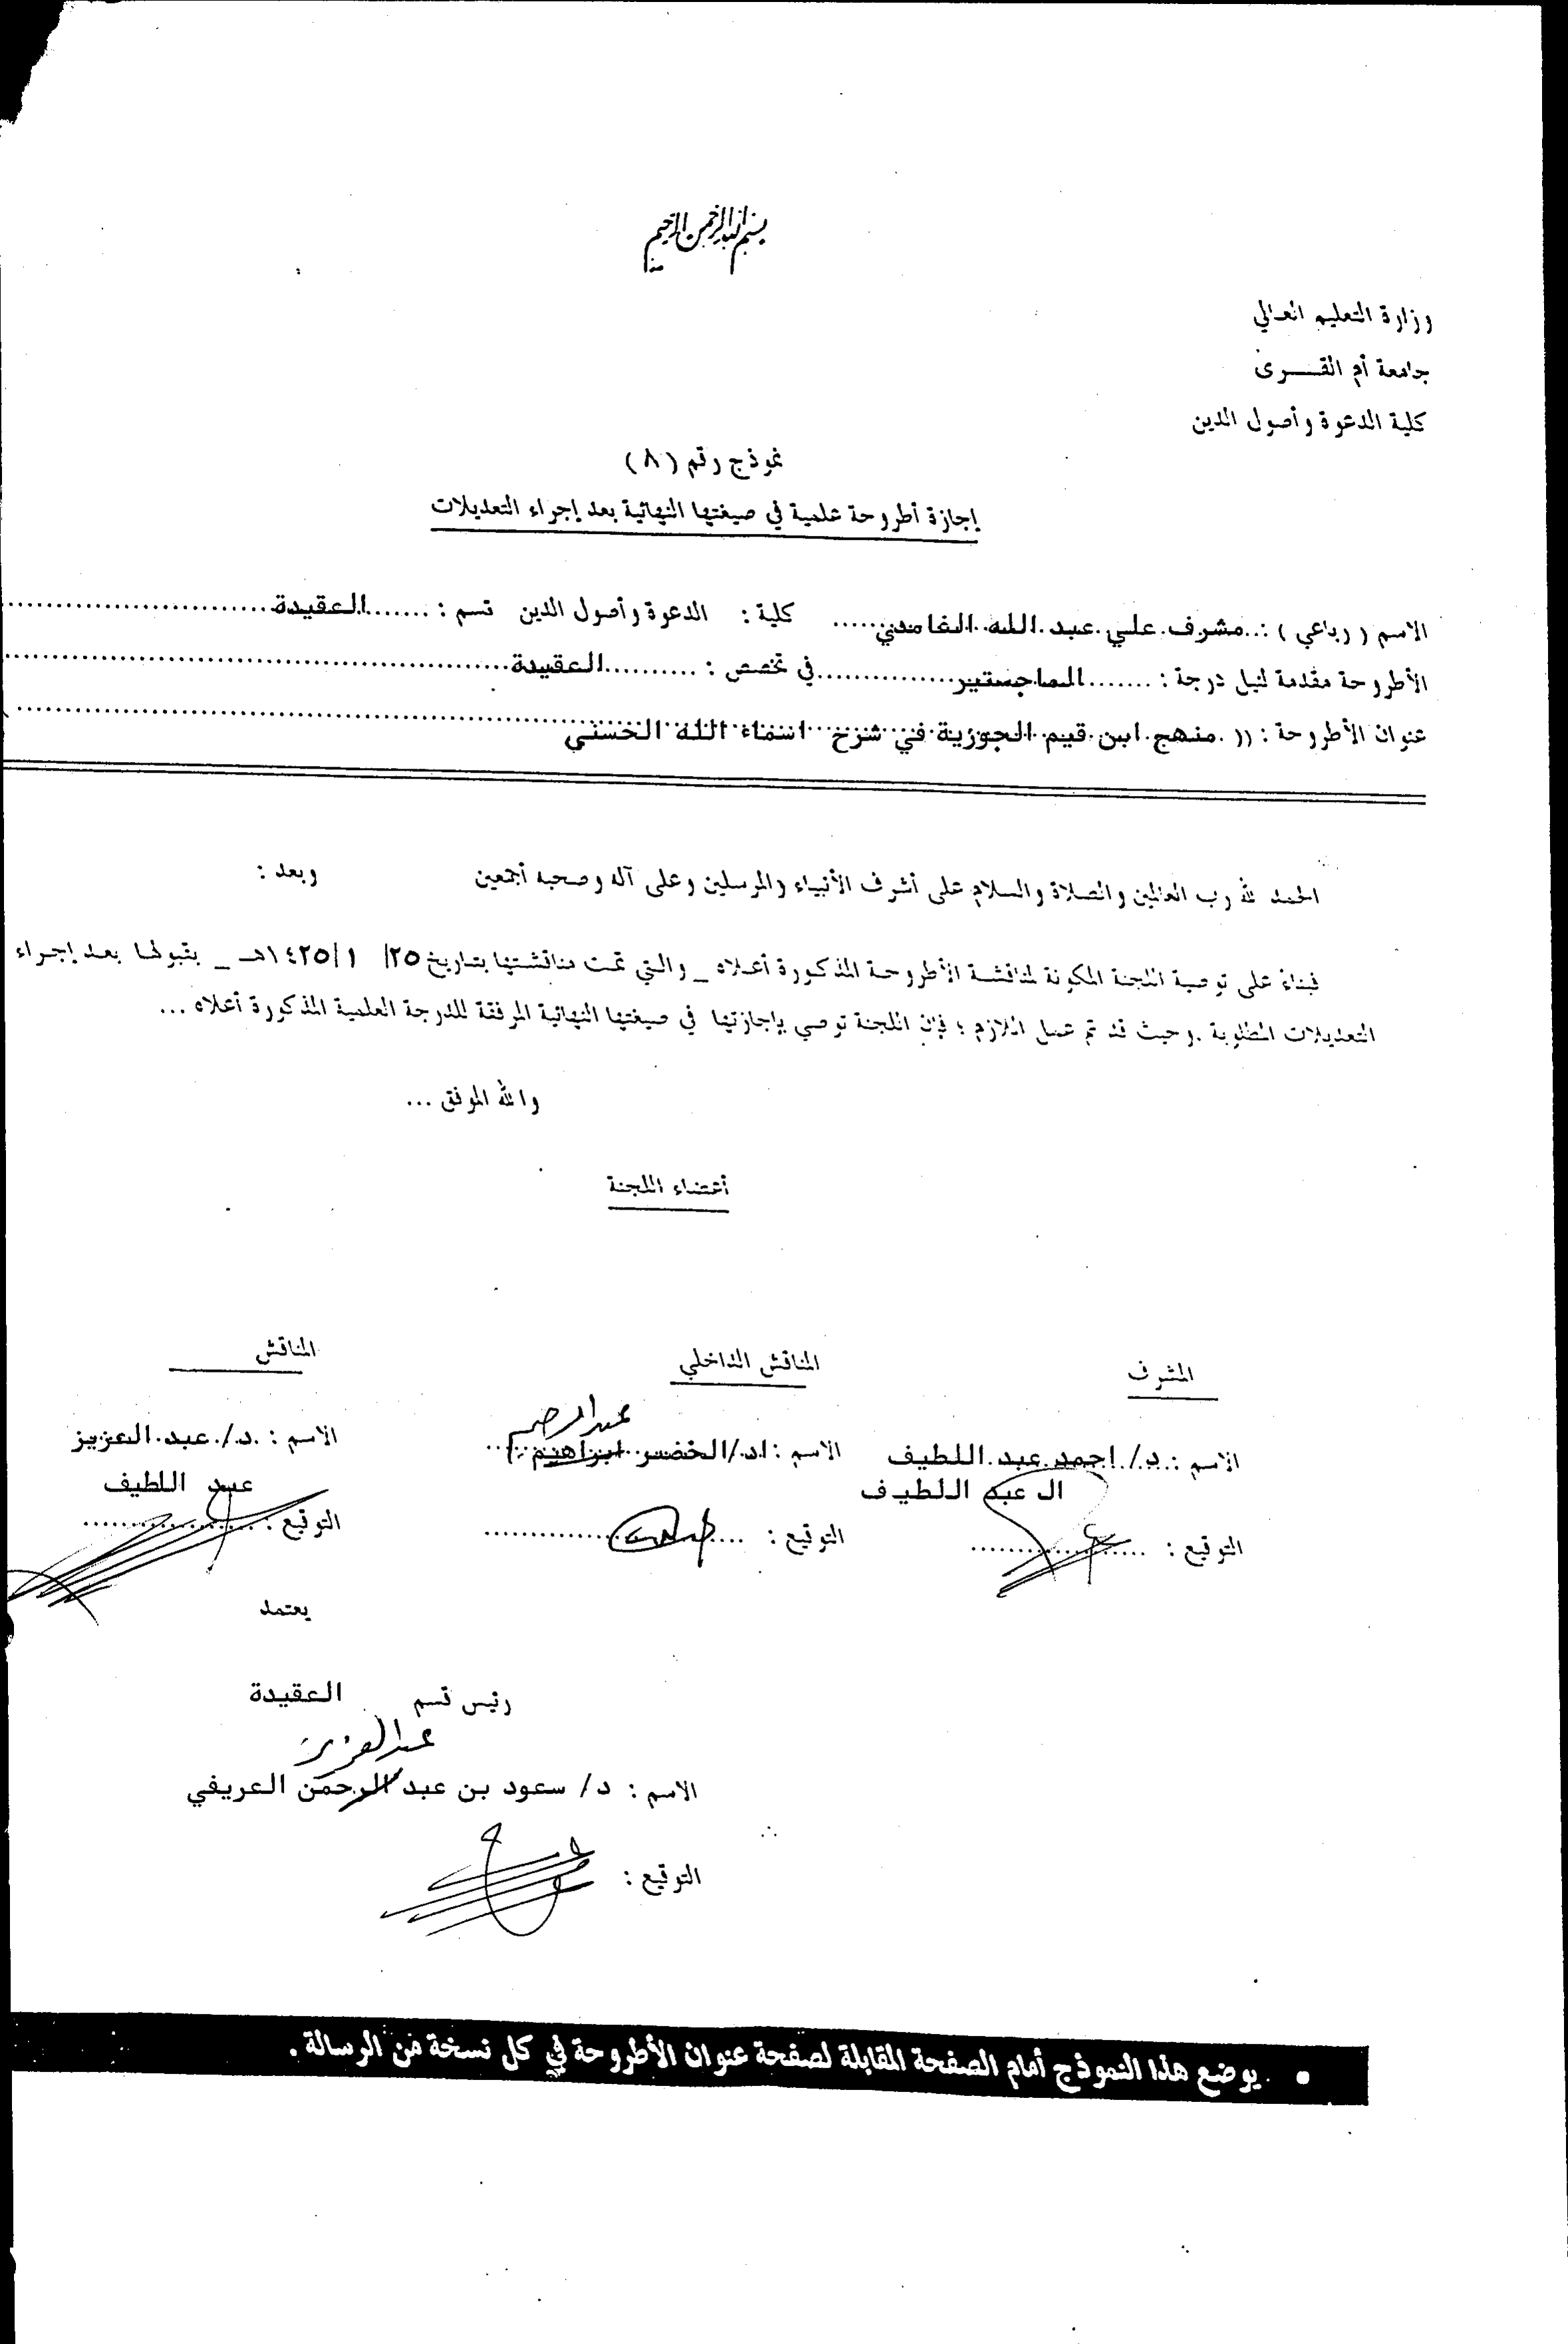 بسم الله الرحمن الرحيم
وزارة التعليم العالي
جامعة أم القــــرى
كلية الدعوة وأصول الدين
نموذج رقم ( ٨ )
إجازة أطروحة علمية في صيغتها النهائية بعد إجراء التعديلات
الاسم ( رباعي ) : مشرف علي عبد الله الغامدي كلية : الدعوة وأصول الدين قسم : العقيدة
الأطروحة مقدمة لنيل درجة : الماجستير في تخصص : العقيدة
عنوان الأطروحة : (( منهج ابن قيم الجوزية في شرح اسماء الله الحسنى
الحمد لله رب العالمين والصلاة والسلام على أشرف الأنبياء والمرسلين وعلى آله وصحبه أجمعين وبعد :
فبناءً على توصية اللجنة المكونة لمناقشة الأطروحة المذكورة أعلاه _ والتي تمت مناقشتها بتاريخ ٢٥/ ١ /١٤٢٥هـ _ بقبولها بعد إجراء
التعديلات المطلوبة . وحيث قد تم عمل اللازم ؛ فإن اللجنة توصي بإجازتها في صيغتها النهائية المرفقة للدرجة العلمية المذكورة أعلاه ...
والله الموفق ...
أعضاء اللجنة
المشرف المناقش الداخلي المناقش
عبدالرحيم
الاسم : د/ احمد عبد اللطيف الاسم : اد/الخضر ابراهيم الاسم : د/ عبد العزيز
ال عبد اللطيف عبد اللطيف
التوقيع : التوقيع : التوقيع :
يعتمد
رئيس قسم العقيدة
عبدالعزيز
الاسم : د/ سعود بن عبد الرحمن العريفي
التوقيع :
• يوضع هذا النموذج أمام الصفحة المقابلة لصفحة عنوان الأطروحة في كل نسخة من الرسالة .